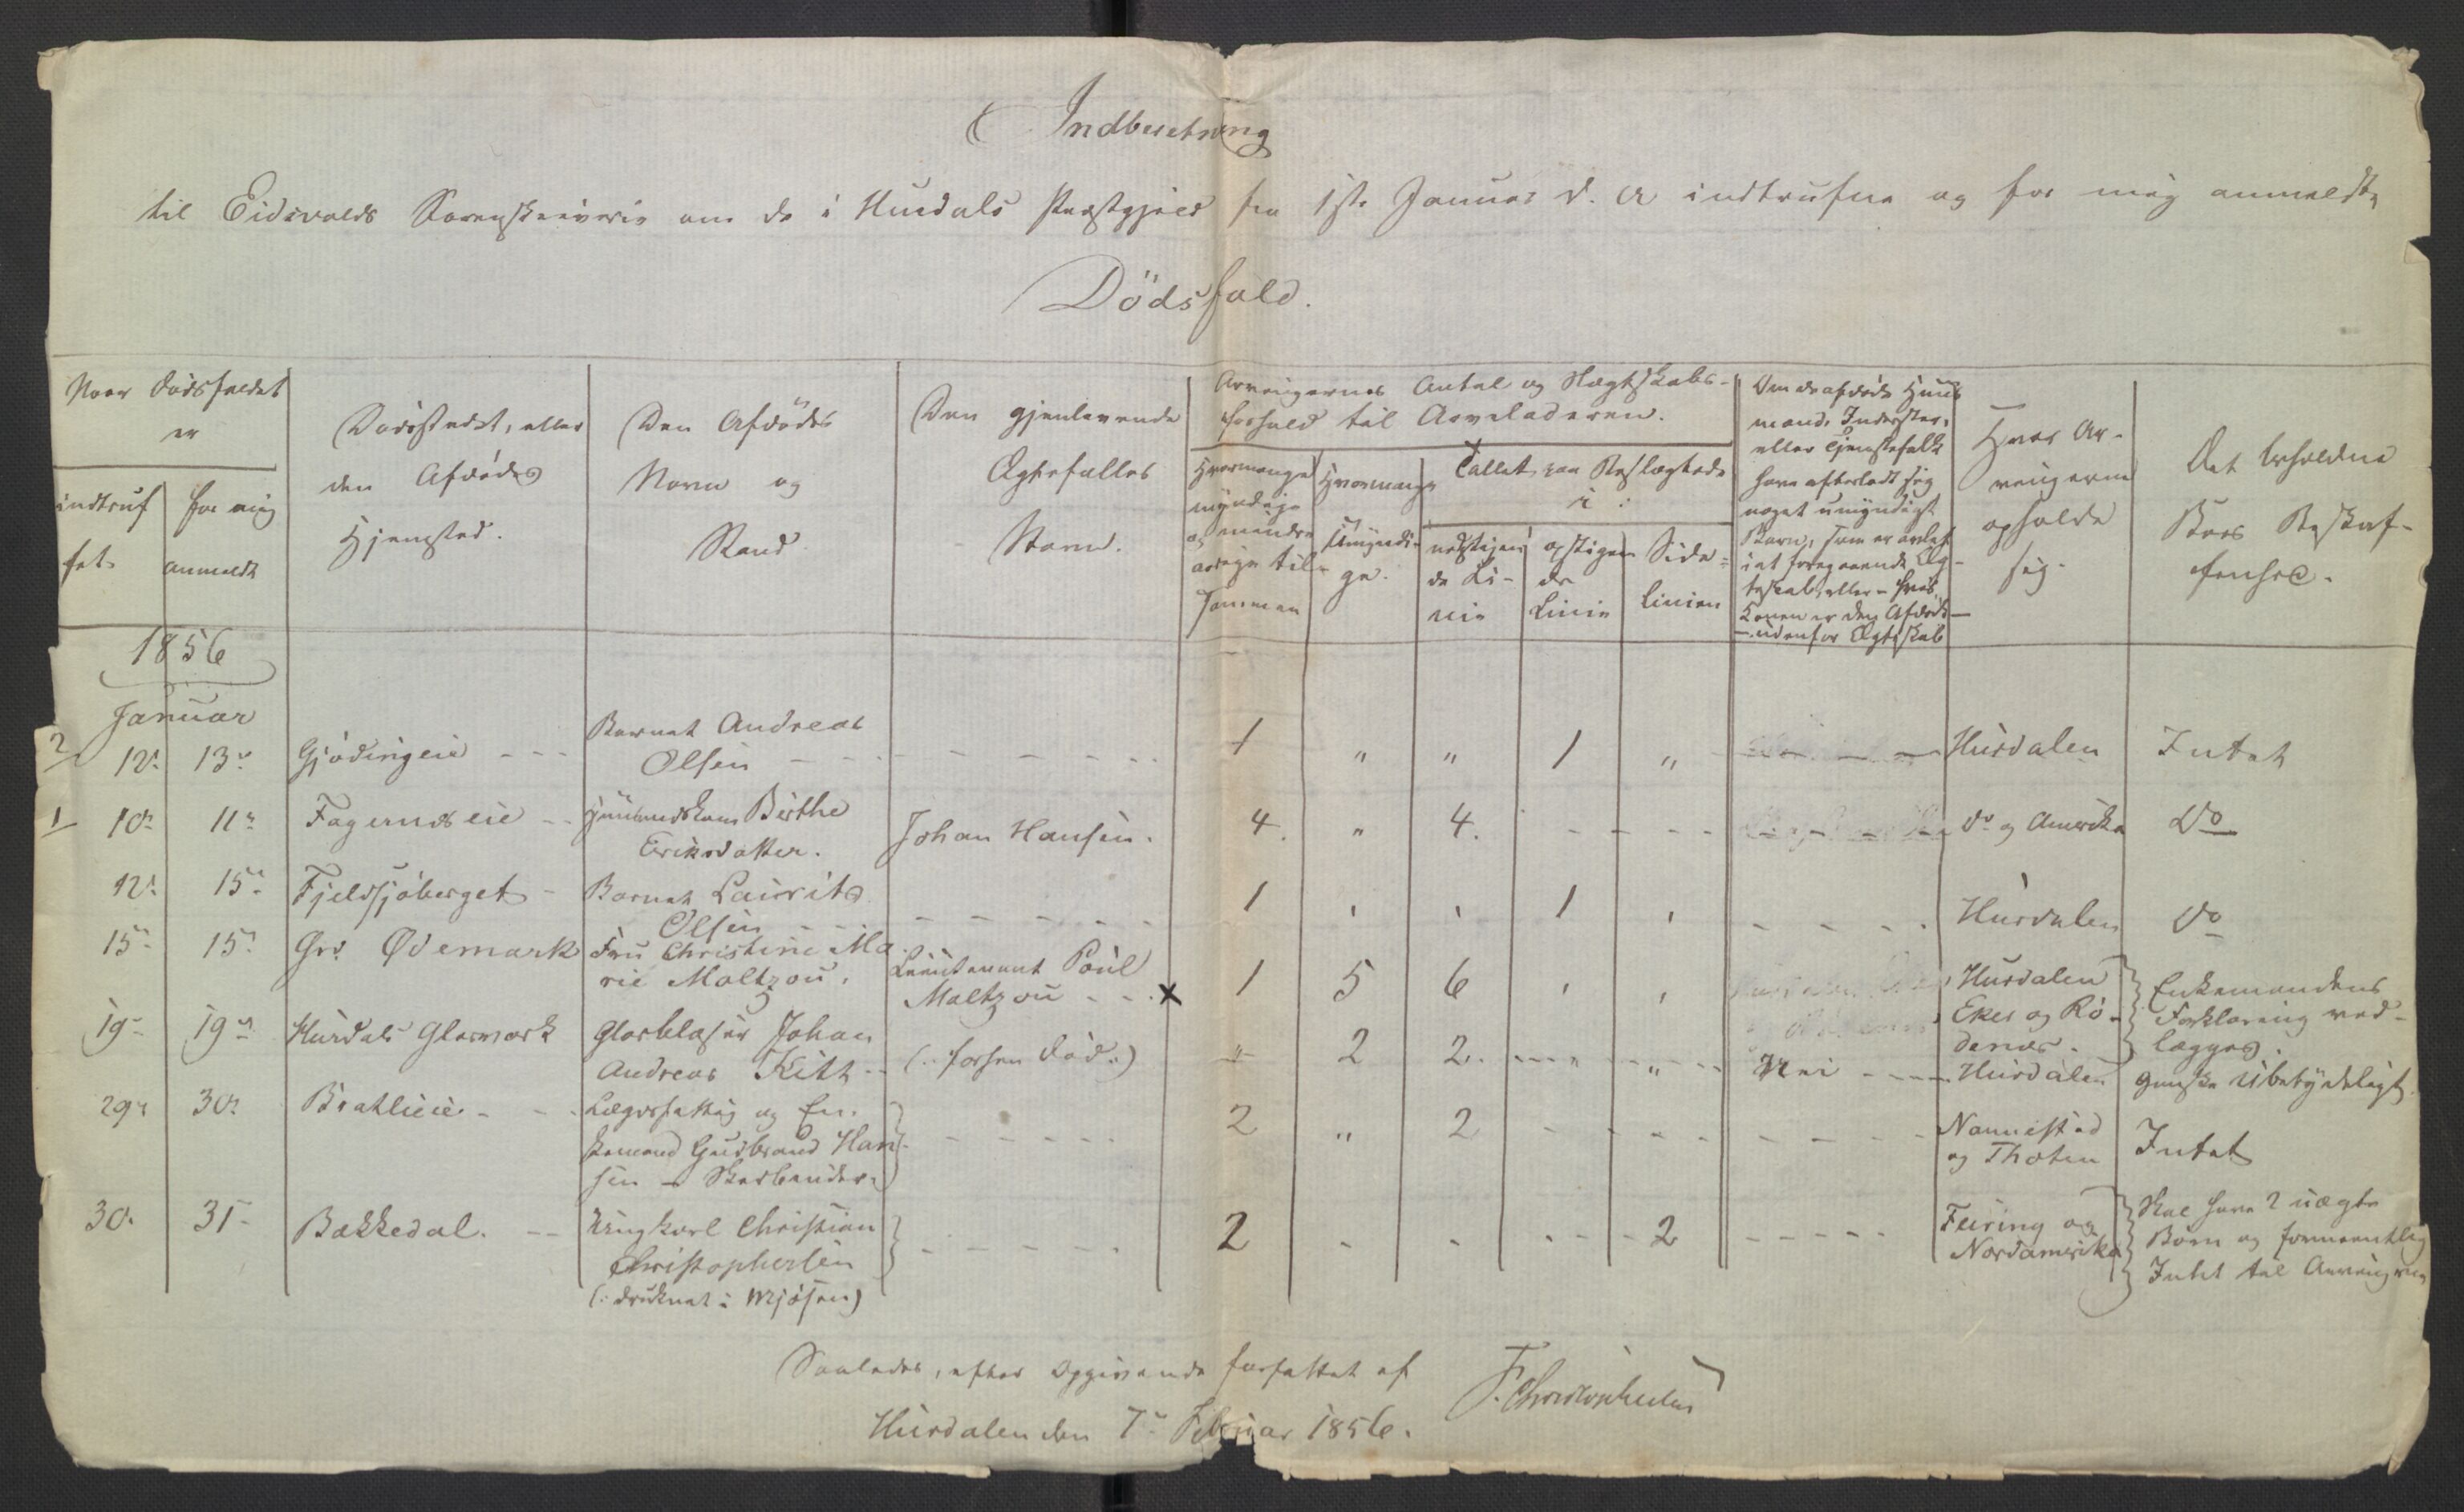 Indberetning
til Eidsvolds Sorenskriverie om de i Hurdals Præstegjeld fra 1ste Januar d. A indtrufne og for mig anmeldte
Dödsfald.
Naar Dødsfaldet
er
indtruf
fet.
for mig
anmeldt
Dødsstedet, eller
den Afdødes
Hjemsted.
Den Afdödes
Navn og
Stand
Den gjenlevende
Ægtefælles
Navn.
Arvingernes Antal og Slægtskabs-
forhold til Arveladeren.
Hvormange
myndige
og mindre
aarige til-
sammen
Hvormange
Umyndi-
ge.
Tallet paa Beslægtede
i:
nedstigen
de Li-
nie
opstigen
de
Linie
Side-
Linien
Om de afdøde Huus
mænd, Inderster,
eller Tjenestefolk
have efterladt sig
noget umyndigt
Barn, som er avlet
i et foregaaende Æg-
teskab, eller - hvis
Konen er den Afdøde -
- udenfor Ægteskab
Hvor Ar-
vingerne
opholde
sig.
Det beholdne
Boes Beskaf-
fenhed.
1856
Januar
2 12. 13. Gjödingeie - - - Barnet Andreas
Olsen - - - 1 " " 1 " Hurdalen Intet
1 10. 11. Fagernæseie - - Huusmandskone Birthe
Eriksdatter. Johan Hansen. 4. " 4. - - - - do og Amerika Do
12. 15. Fjeldsjöberget - Barnet Laurits
Olsen - - 1 , , 1 , - - - - Hurdalen Do
15. 15. Grd. Ødemark Fru Christine Ma
rie Moltzou. Lieutenant Poul
Moltzou - - x 1 5 6 , , Hurdalen
Eker og Rö-
denæs. Enkemandens
Forklaring ved-
lægges.
19. 19. Hurdals Glasværk Glasblæser Johan
Andreas Kitz - - (: forhen död :) " 2 2. - - - " - - Nei - - - Hurdalen Ganske Ubetydeligt.
29. 30. Bratlieie - - Lægdsfattig og En-
kemand Gudbrand Han-
sen - Skarbender. - - - - - 2 " 2 - - - - - - - - Nannestad
og Thoten Intet
30. 31. Bækkedal. - - Ungkarl Christian
Christophersen
(: druknet i Mjøsen) - - - - - 2 - - - - - 2 - - - - - Feiring og
Nordamerika Skal have 2 uægte
Børn og formeentlig
Intet til Arvingerne
Saaledes, efter Opgivende forfattet af
Hurdalen den 7. Februar 1856.